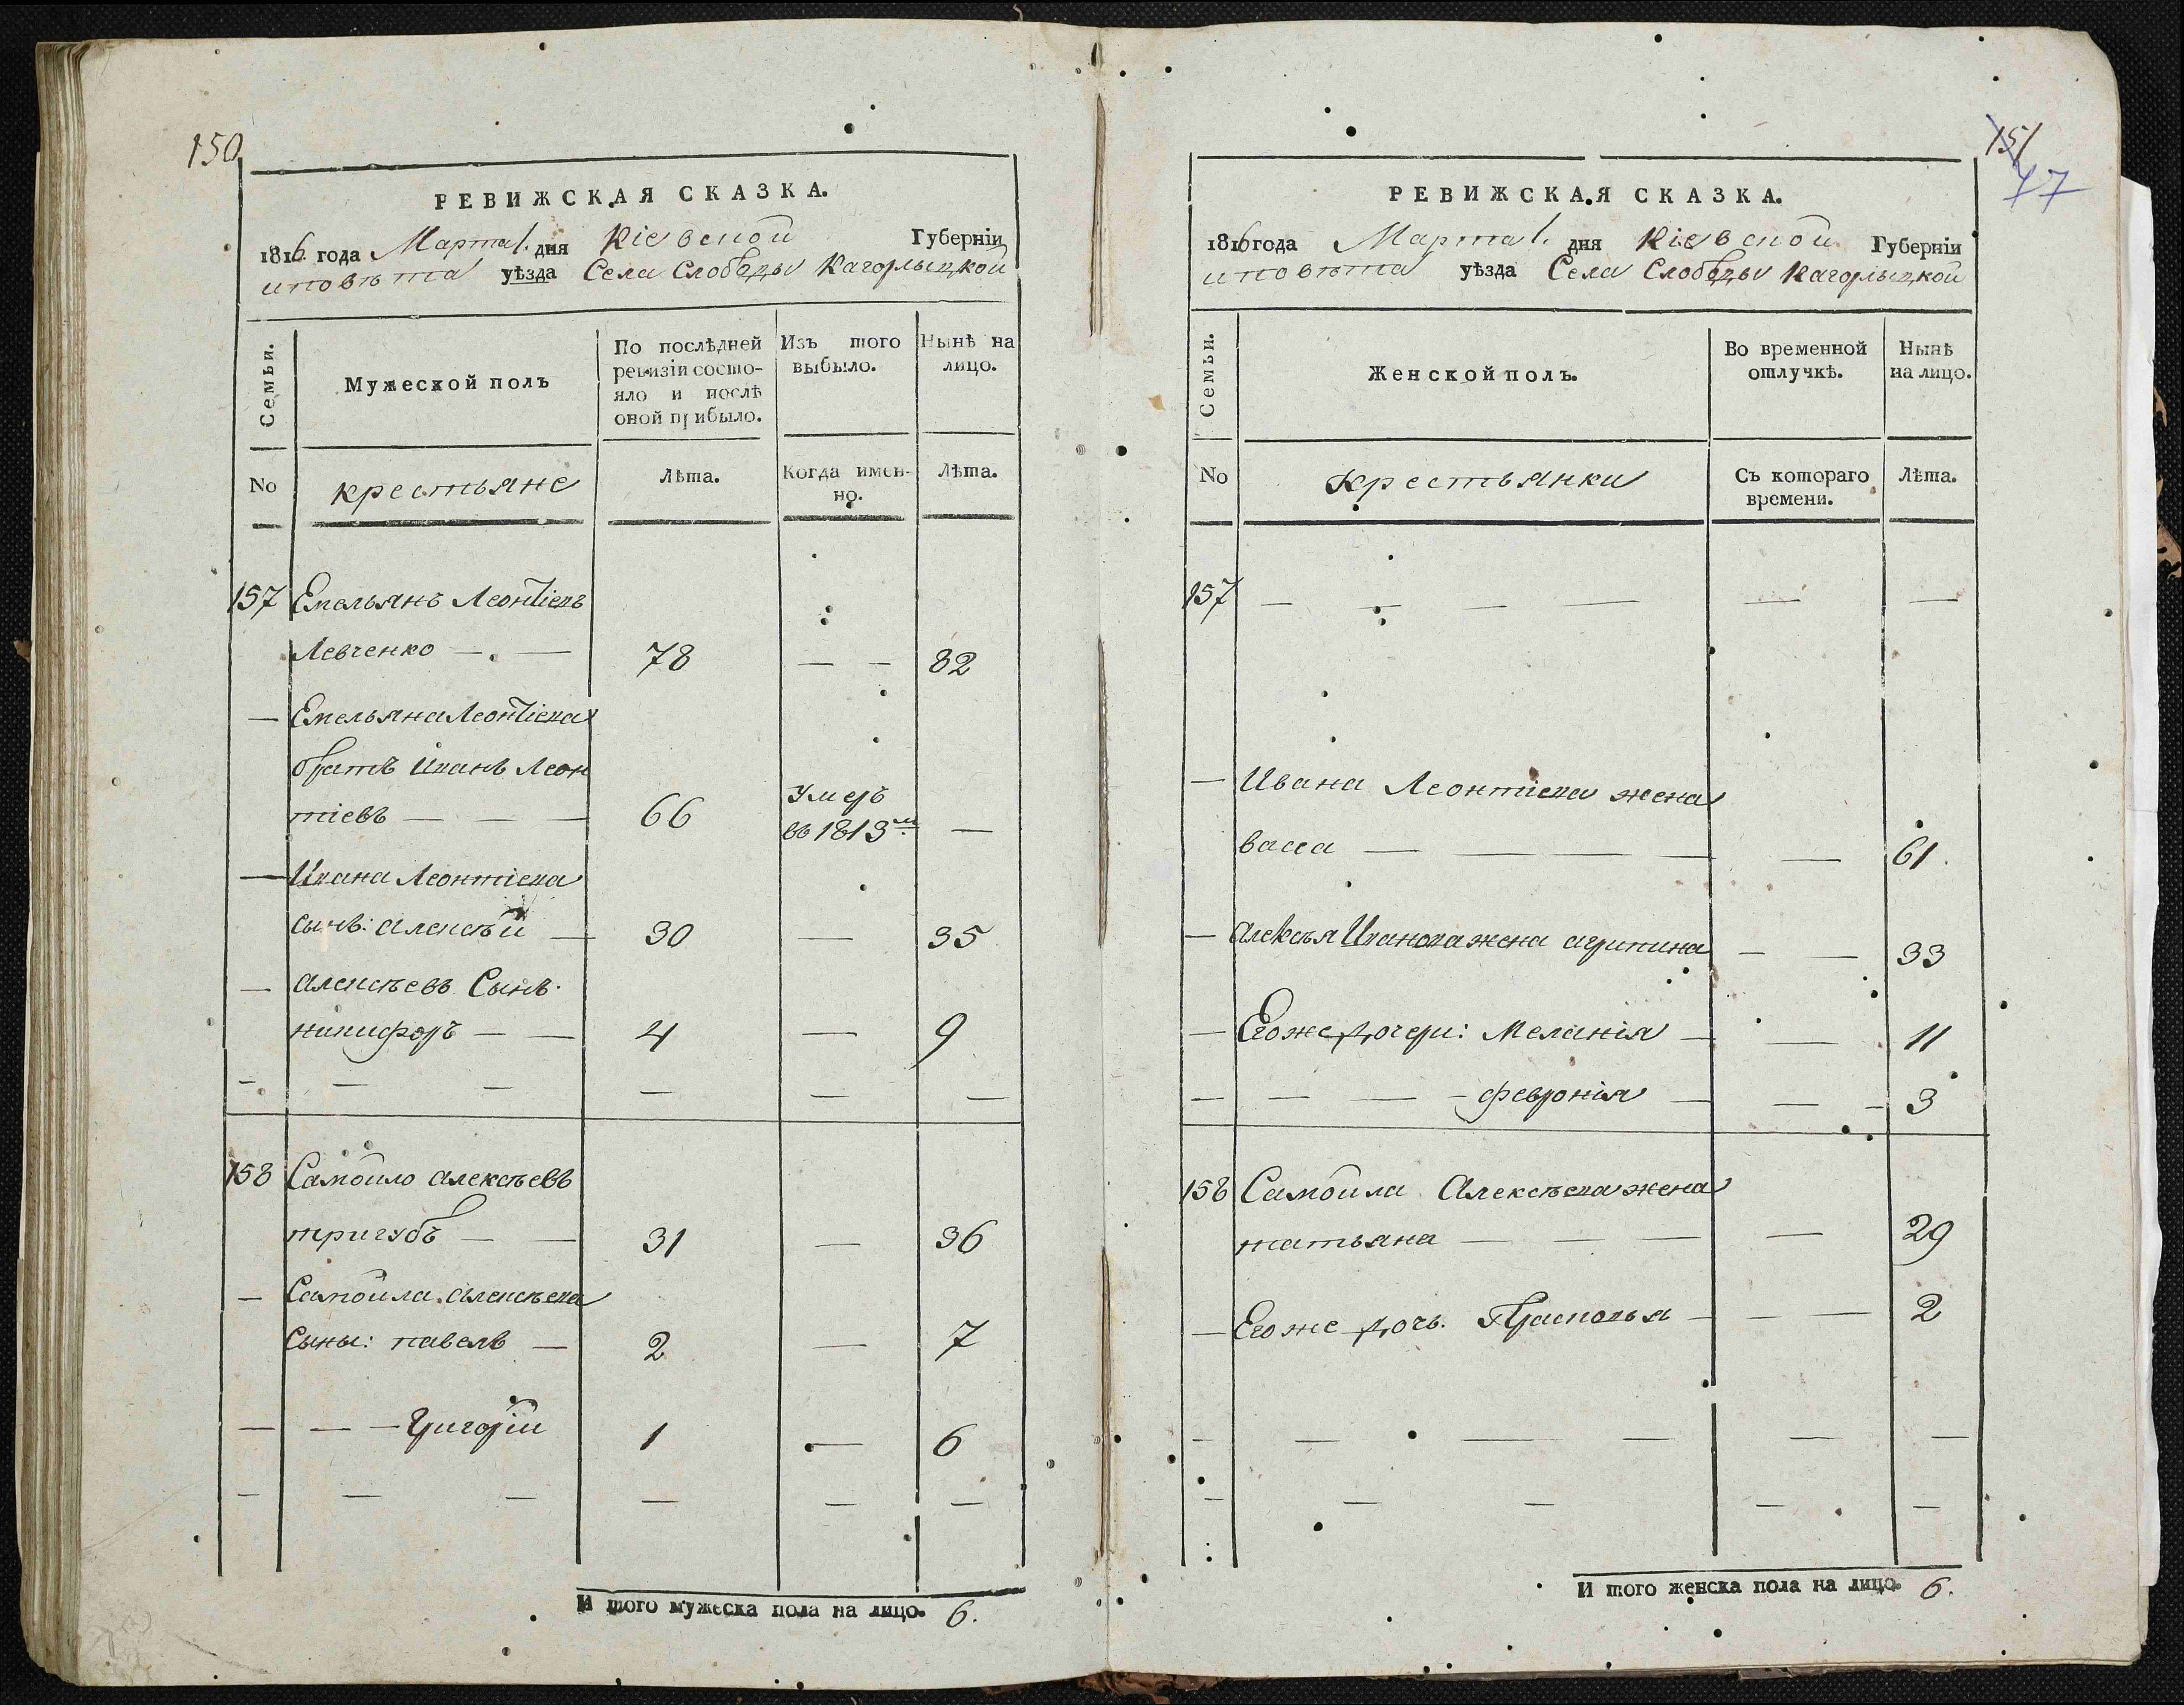 150
РЕВИЖСКАЯ СКАЗКА.
1816 года Марта 1. дня Кіевской Губерніи
уѣзда Села Слободы Кагорлыцкой
Семьи.
Мужеской полъ
По послѣдней ревизіи состо-
яло и послѣ
оной прибыло.
Изъ того выбыло.
Нынѣ на лицо.
No
крестьяне
Лѣта.
Когда имен-
но.
Лѣта.
157 Емельянъ Леонтіевъ
Левченко — — 78 — — 82
— Емельяна Леонтіева
братъ Иванъ Леон
тіевъ — — — 66 Умеръ въ 1813м —
— Ивана Леонтіева
сынъ: Алексѣй — 30 — 35
— Алексѣевъ Сынъ
никифоръ — — 4 — 9
— — — — — —
158 Самойло Алексѣевъ
тригубъ — — 31 — 36
— Самойла Алексѣева
Сыны: павелъ — 2 — 7
— — — Григорій 1 — 6
— — — — — —
И того мужеска пола на лицо. 6.
151
77
РЕВИЖСКАЯ СКАЗКА.
1816 года Марта 1. дня Кіевской Губерніи
уѣзда Села Слободы Кагорлыцкой
Семьи.
Женской полъ.
Во временной
отлучкѣ.
Нынѣ
на лицо.
No
Крестьянки
Съ котораго
времени.
Лѣта.
157 — — — — — —
— Ивана Леонтіева жена
васса — — — — 61.
— Алексѣя Иванова жена агрипина — — 33
— Его же дочери: Меланія — — 11
— — — — феvронія — — — 3
158 Самойла Алексѣева жена
татьяна — — — — 29
— Его же дочь. Прасковья — — — 2
— — — — — —
— — — — —
И того женска пола на лицо. 6.